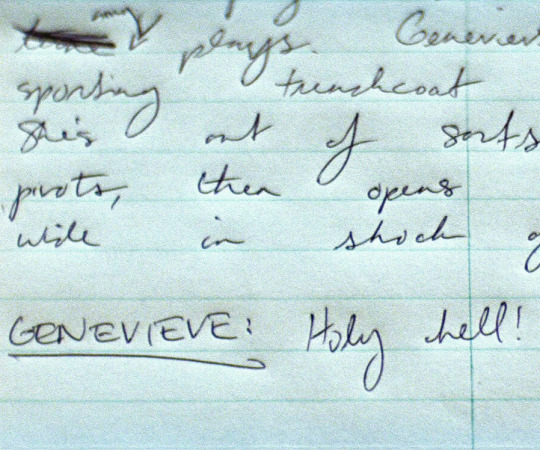 plays. Genevieve
sporting trenchcoat
She's out of sorts
pivots, then opens
wide in shock
GENEVIEVE: Holy hell!